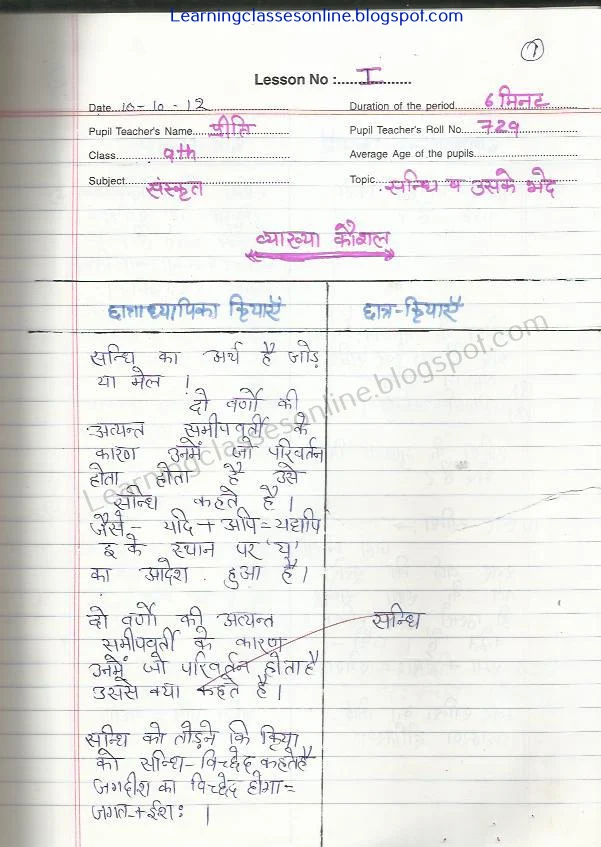 Learningclassesonline.blogspot.com
1
Lesson No :..... I .........
Date 10-10-12 Duration of the period 6 मिनट
Pupil Teacher's Name प्रीति Pupil Teacher's Roll No. 729
Class 9th Average Age of the pupils
Subject संस्कृत Topic सन्धि व उसके भेद
व्याख्या कौशल
छात्राध्यापिका क्रियाएँ छात्र-क्रियाएँ
सन्धि का अर्थ है जोड़
या मेल ।
दो वर्णो की
अत्यन्त समीपवर्ती के
कारण उनमें जो परिवर्तन
होता होता है उसे
सन्धि कहते है ।
जैसे - यदि + अपि = यद्यपि
इ के स्थान पर 'य्'
का आदेश हुआ है।
दो वर्णो की अत्यन्त सन्धि
समीपवर्ती के कारण
उनमें जो परिवर्तन होता है
उससे क्या कहते है ।
सन्धि को तोड़ने कि क्रिया
को सन्धि-विच्छेद कहते है
जगदीश का विच्छेद होगा =
जगत + ईशः ।
Learningclassesonline.blogspot.com